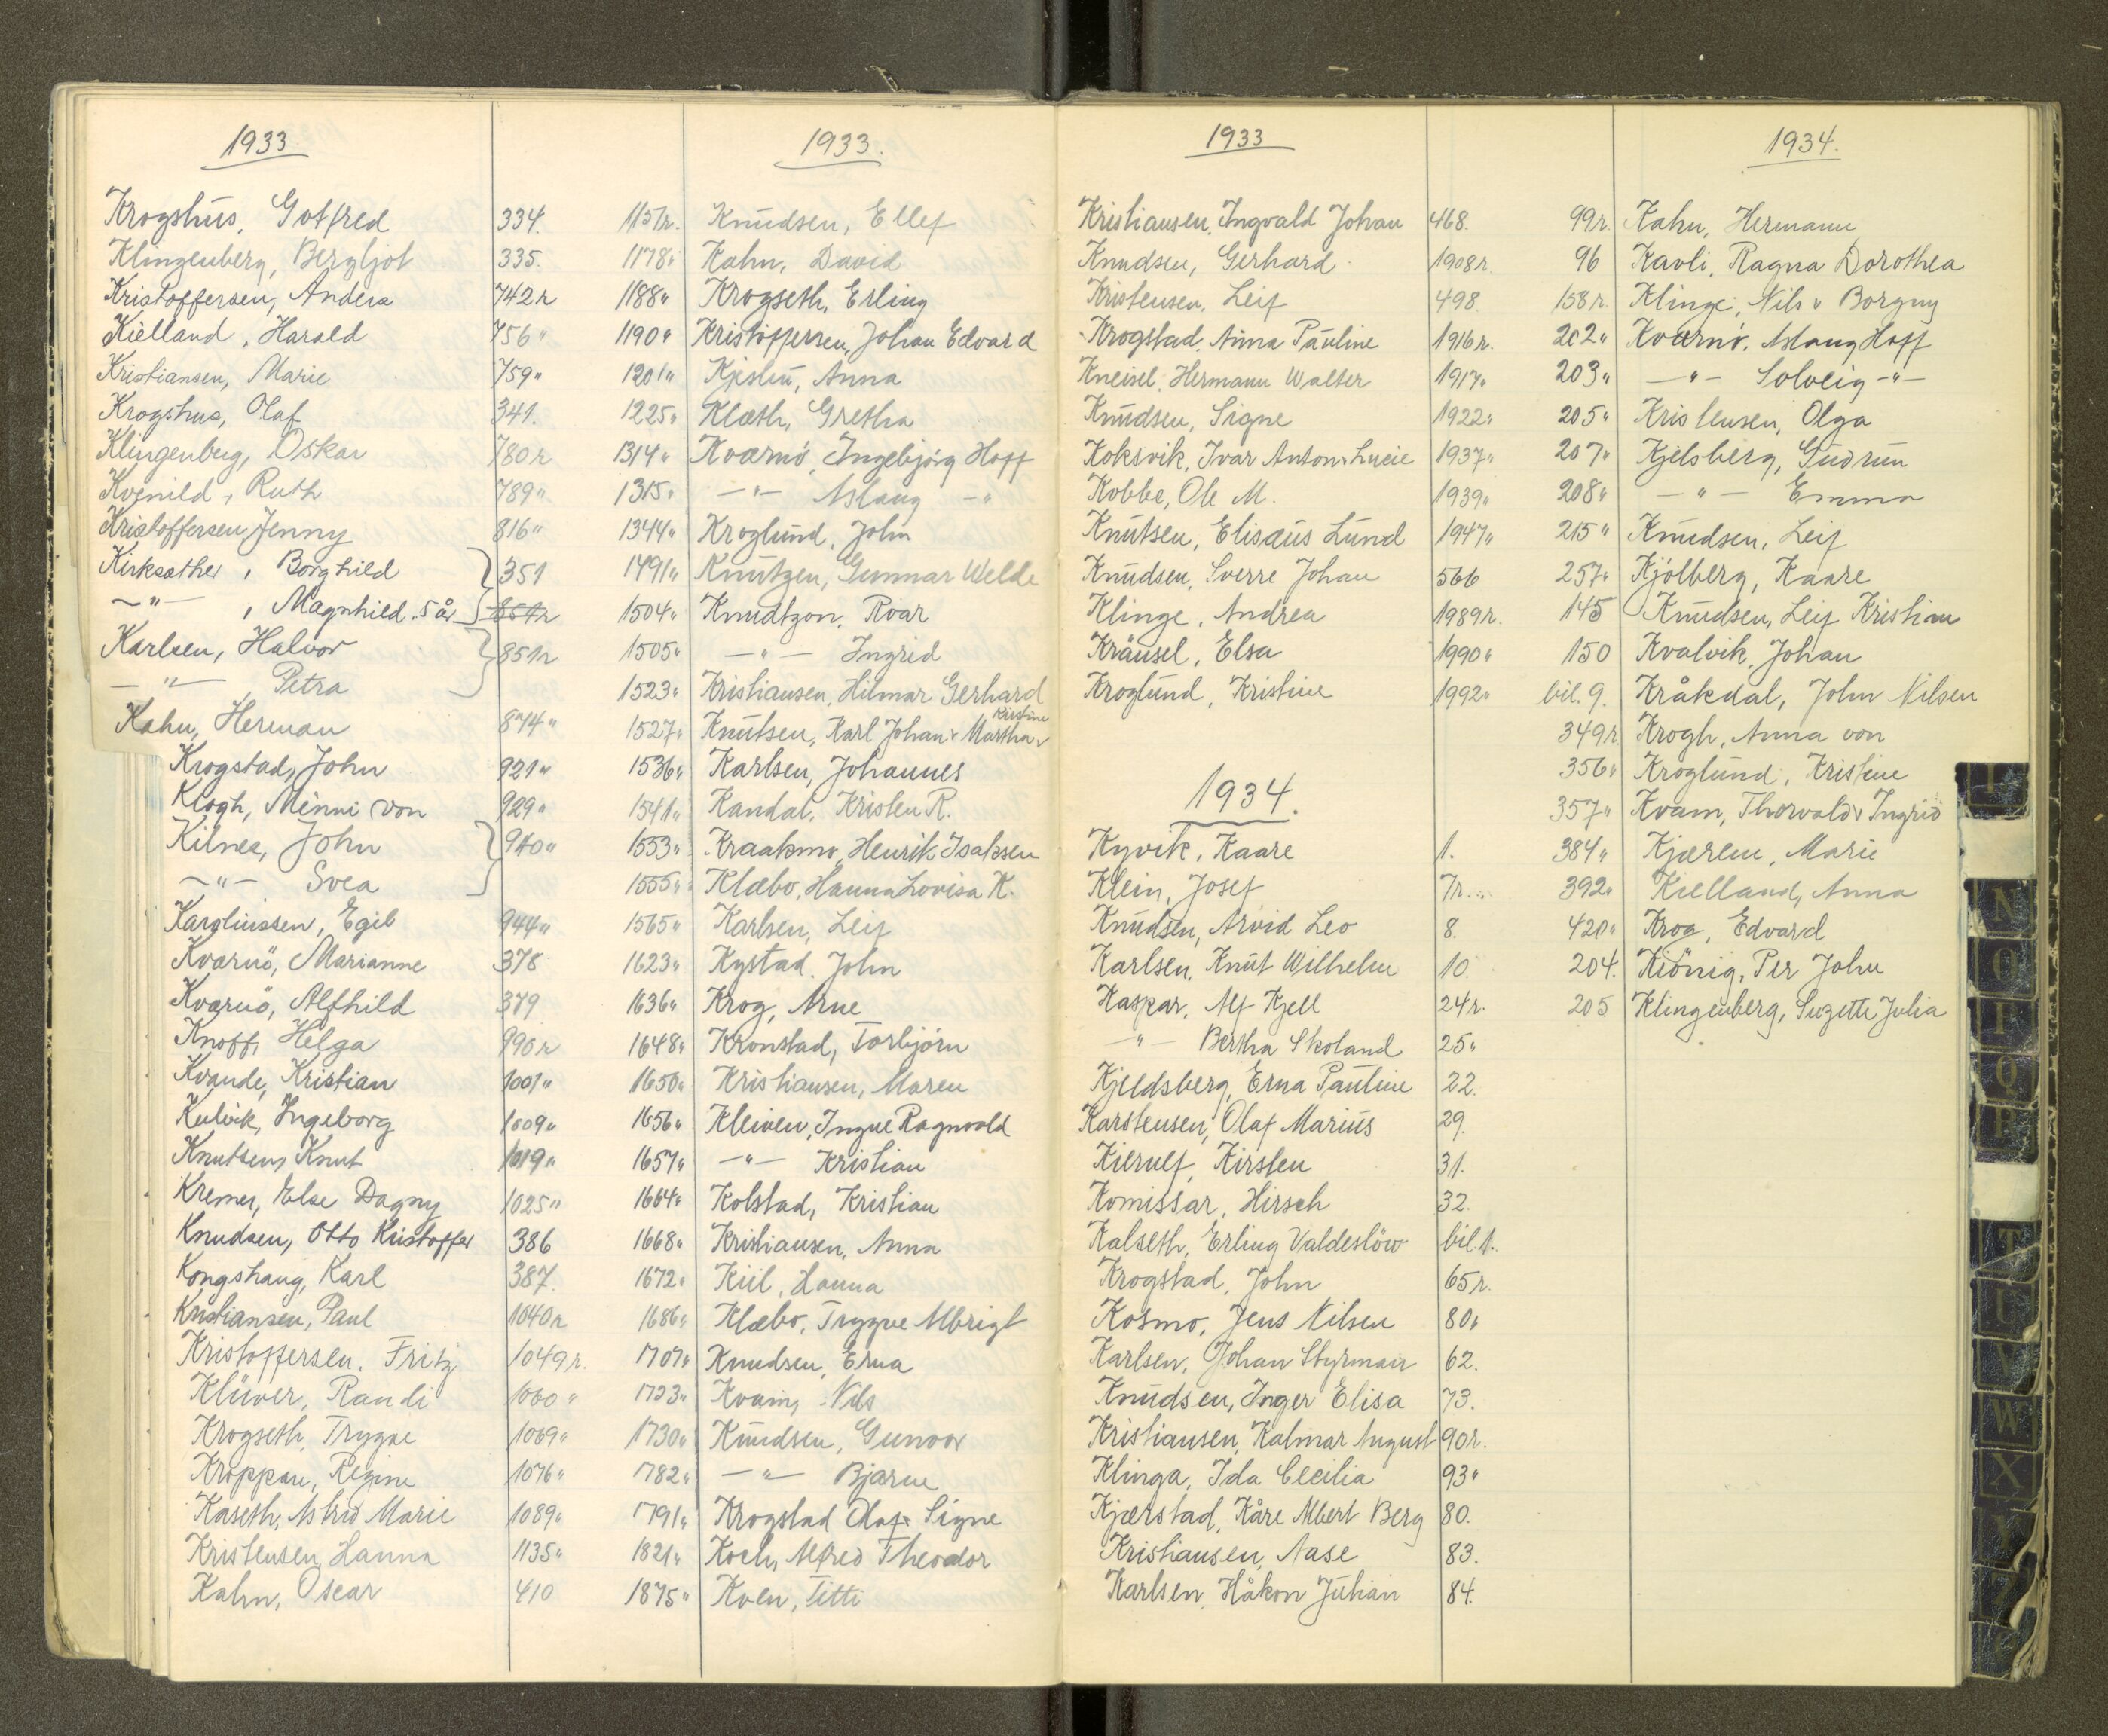 1933
Krogshus, Gotfred 334.
Klingenberg, Bergljot 335.
Kristoffersen, Anders 742 r
Kielland, Harald 756 "
Kristiansen, Marie 759 "
Krogshus, Olaf 341.
Klingenberg, Oskar 780 r
Kvenild, Ruth 789 "
Kristoffersen, Jenny 816 "
Kirksæther, Borghild 351
— " — , Magnhild. 5 år
Karlsen, Halvor 851 r
— " — , Petra
Kahn, Herman 874 "
Krogstad, John 921 "
Krogh, Minni von 929 "
Kilnes, John 940 "
— " — Svea
Karoliussen, Egil 944 "
Kvarnö, Marianne 378
Kvarnö, Alfhild 379
Knoff, Helga 990 r
Kvande, Kristian 1001 "
Kulvik, Ingeborg 1009 "
Knutsen, Knut 1019 "
Kremer, Else Dagny 1025 "
Knudsen, Otto Kristoffer 386
Kongshaug, Karl 387.
Kristiansen, Paul 1040 r
Kristoffersen, Fritz 1049 r.
Klüver, Randi 1060 "
Krogseth, Trygve 1069 "
Kroppan, Regine 1076 "
Kaseth, Astrid Marie 1089 "
Kristensen, Hanna 1135 "
Kahn, Oscar 410
1933.
1157 r. Knudsen, Ellef
1178 " Kahn, David
1188 " Krogseth, Erling
1190 " Kristoffersen, Johan Edvard
1201 " Anna
1225 " Klæth, Gretha
1314 " Kværnø, Ingebjørg Hoff
1315 " — " — Aslaug — "
1344 " Kroglund, John
1491 " Knutzen, Gunnar Welde
1504 " Knudtzon, Roar
1505 " — " — Ingrid
1523 " Kristiansen, Hilmar Gerhard
1527 " Knutsen, Karl Johan & Martha Kirstine
1536 " Karlsen, Johannes
1541 " Kandal, Kristen R.
1553 " Kraakmo, Henrik Isaksen
1555 " Klæbo, Hanna Lovisa K.
1565 " Karlsen, Leif
1623 " Kystad, John
1636 " Krog, Arne
1648 " Kronstad, Torbjørn
1650 " Kristiansen, Maren
1656 " Kleiven, Ingve Ragnvald
1657 " — " — Kristian
1664 " Kolstad, Kristian
1668 " Kristiansen, Anna
1672 " Kiil, Hanna
1686 " Klæbo, Trygve Albrigt
1707 " Knudsen, Erna
1723 " Kvam, Nils
1730 " Knudsen, Gunvor
1782 " — " — Bjarne
1791 " Krogstad Olaf & Signe
1821 " Koch, Alfred Theodor
1875 " Kven, Titti
1933
Kristiansen, Ingvald Johan 468.
Knudsen, Gerhard 1908 r.
Kristensen, Leif 498.
Krogstad, Anna Pauline 1916 r.
Kneisel, Hermann Walter 1917 "
Knudsen, Signe 1922 "
Koksvik, Ivar Anton & Lucie 1937 "
Kobbe, Ole M. 1939 "
Knutsen, Elisæus Lund 1947 "
Knudsen, Sverre Johan 566
Klinge, Andrea 1989 r.
Kräusel, Elsa 1990 "
Kroglund, Kristine 1992 "
1934.
Kyvik, Kaare 1.
Klein, Josef 7 r.
Knudsen, Arvid Leo 8.
Karlsen, Knut Wilhelm 10.
Kaspar, Alf Kjell 24 r.
— " — Bertha Skoland 25 "
Kjeldsberg, Erna Pauline 22.
Karstensen, Olaf Marius 29.
Kierulf, Kirsten 31.
Komissar, Hirsch 32.
Kalseth, Erling Valdeslöw bil 1.
Krogstad, John 65 r.
Kosmo, Jens Nilsen 80 "
Karlsen, Johan Styrman 62.
Knudsen, Inger Elisa 73.
Kristiansen, Kalmar August 90 r.
Klinga, Ida Cecilia 93 "
Kjærstad, Kåre Albert Berg 80.
Kristiansen, Aase 83.
Karlsen, Håkon Julian 84.
1934.
99 r. Kahn, Hermann
96 Kavli, Ragna Dorothea
158 r. Klinge, Nils & Borgny
202 " Kværnø, Aslaug Hoff
203 " — " — Solveig — " —
205 " Kristensen, Olga
207 " Kjelsberg, Gudrun
208 " — " — Emma
215 " Knudsen, Leif
257 " Kjölberg, Kaare
145 Knudsen, Leif Kristian
150 Kvalvik, Johan
bil. 9. Kråkdal, John Nilsen
349 r Krogh, Anna von
356 " Kroglund, Kristine
357 " Kvam, Thorvald & Ingrid
384 " Kjærem, Marie
392 " Kielland, Anna
420 " Krog, Edvard
204. Kiönig, Per John
205 Klingenberg, Suzette Julia
I
N
O
P
Q
R
T
U
V
W
X
Y
Z